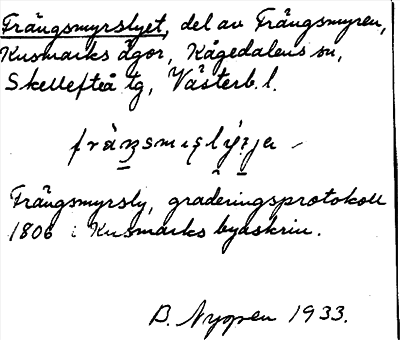 Frängsmyrslyet, del av Frängsmyren,
Kusmarks ägor, Kågedalens sn,
Skellefteå tg, Västerb. l.
Frängsmyrsly, graderingsprotokoll
1806 i Kusmarks byaskrin.
B. Nygren 1933.